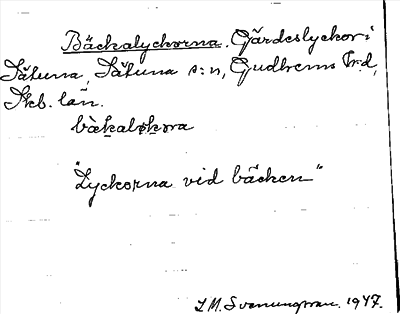 Bäckalyckorna. Gärdeslyckor i
Sätuna, Sätuna s:n, Gudhems hrd,
Skb. län.
bäkaløkora
"Lyckorna vid bäcken"
I M. Svenungsson. 1947.